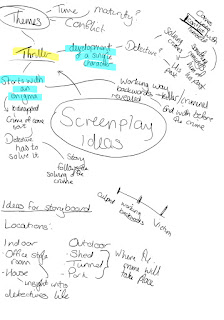 Themes
Time
maturity?
Conflict
Thriller
development
of a single
character
Detective?
Starts with
an
enigma
↳ kidnapped
Crime of some
sort
Detective
has to
solve it
Working way
backwards
revealed
killer/criminal
end with before
the crime
Screenplay
Ideas
Story
follows the
solving of
the crime
Solving
crime
his
past
Culprit
working
backwards
Victim
Ideas for storyboard
Locations:
Indoor
- Office style
room
- House
insight into
detectives life
Outdoor
- Shed
- Tunnel
- Park
Where the
crime will
take place